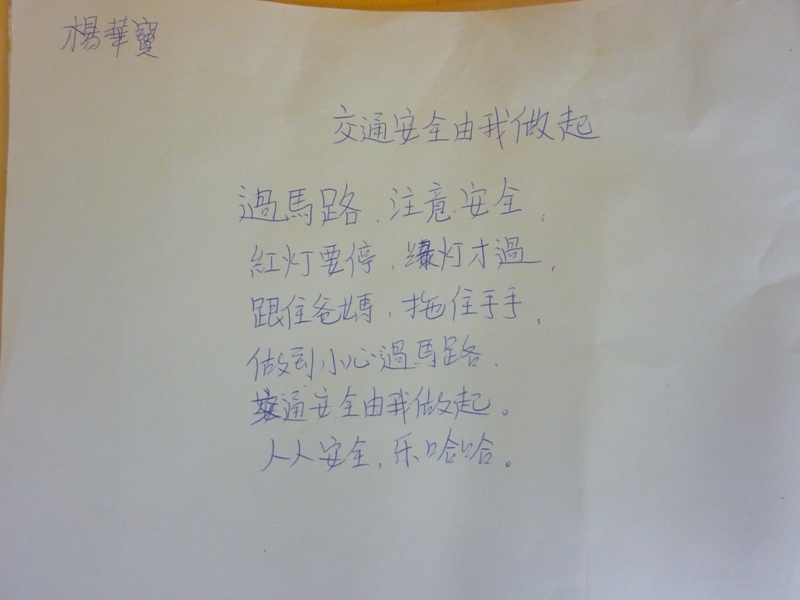 楊華寶
交通安全由我做起
過馬路,注意安全,
紅灯要停,綠灯才過,
跟住爸媽,拖住手手,
做到小心過馬路.
交通安全由我做起。
人人安全,乐哈哈。